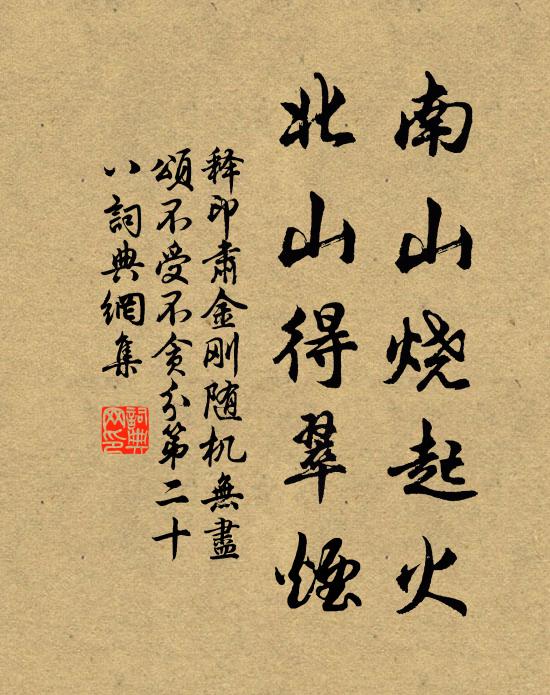 南山烧起火
北山得翠煙
释印肃金刚随机無盡
頌不受不贪分第二十
八詞典網集
詞典
网印